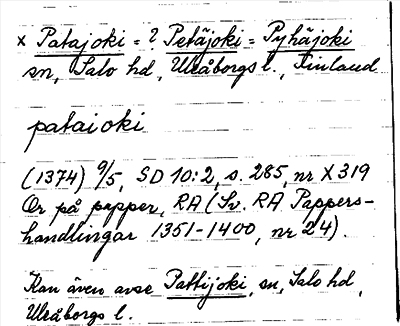 x Patajoki = ? Petäjoki = Pyhäjoki
sn, Salo hd, Uleåborgs l., Finland
pataioki
(1374) 9/5, SD 10:2, s. 285, nr X319
Or på papper, RA (Sv. RA Pappers-
handlingar 1351-1400, nr 24).
Kan även avse Pattijoki, sn, Salo hd,
Uleåborgs l.